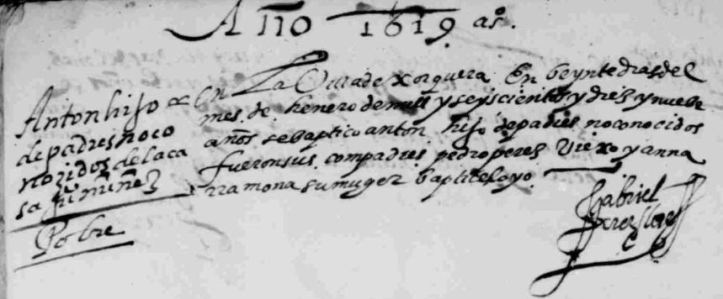 Año 1619 as.
Anton hijo
de padres no co
nozidos de la ca
sa
Pobre
En La Villa de Xorquera En beynte dias del
mes de henero de mill y seyscientos y diez y nuebe
años se baptiço anton hijo de padres no conocidos
fueron sus compadres pedro perez Viexo y anna
ramona su muger baptiçelo yo
Gabriel